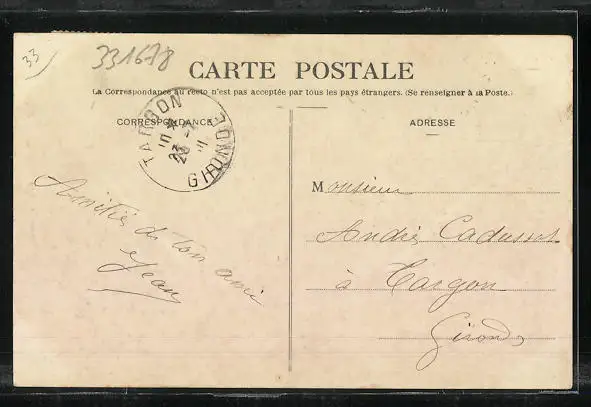 33
331678
CARTE POSTALE
La Correspondance au recto n'est pas acceptée par tous les pays étrangers. (Se renseigner à la Poste.)
CORRESPONDANCE
ADRESSE
TARGON
GIRONDE
Amitiés de ton ami
Jean
Monsieur
André
à Targon
Gironde